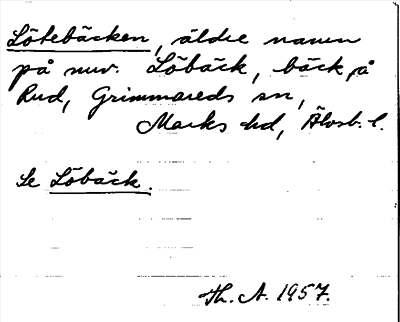 Lötebäcken, äldre namn
på nuv. Löbäck, bäck å
Rud, Grimmareds sn,
Marks hd, Älvsb. l.
Se Löbäck.
Th. A. 1957.